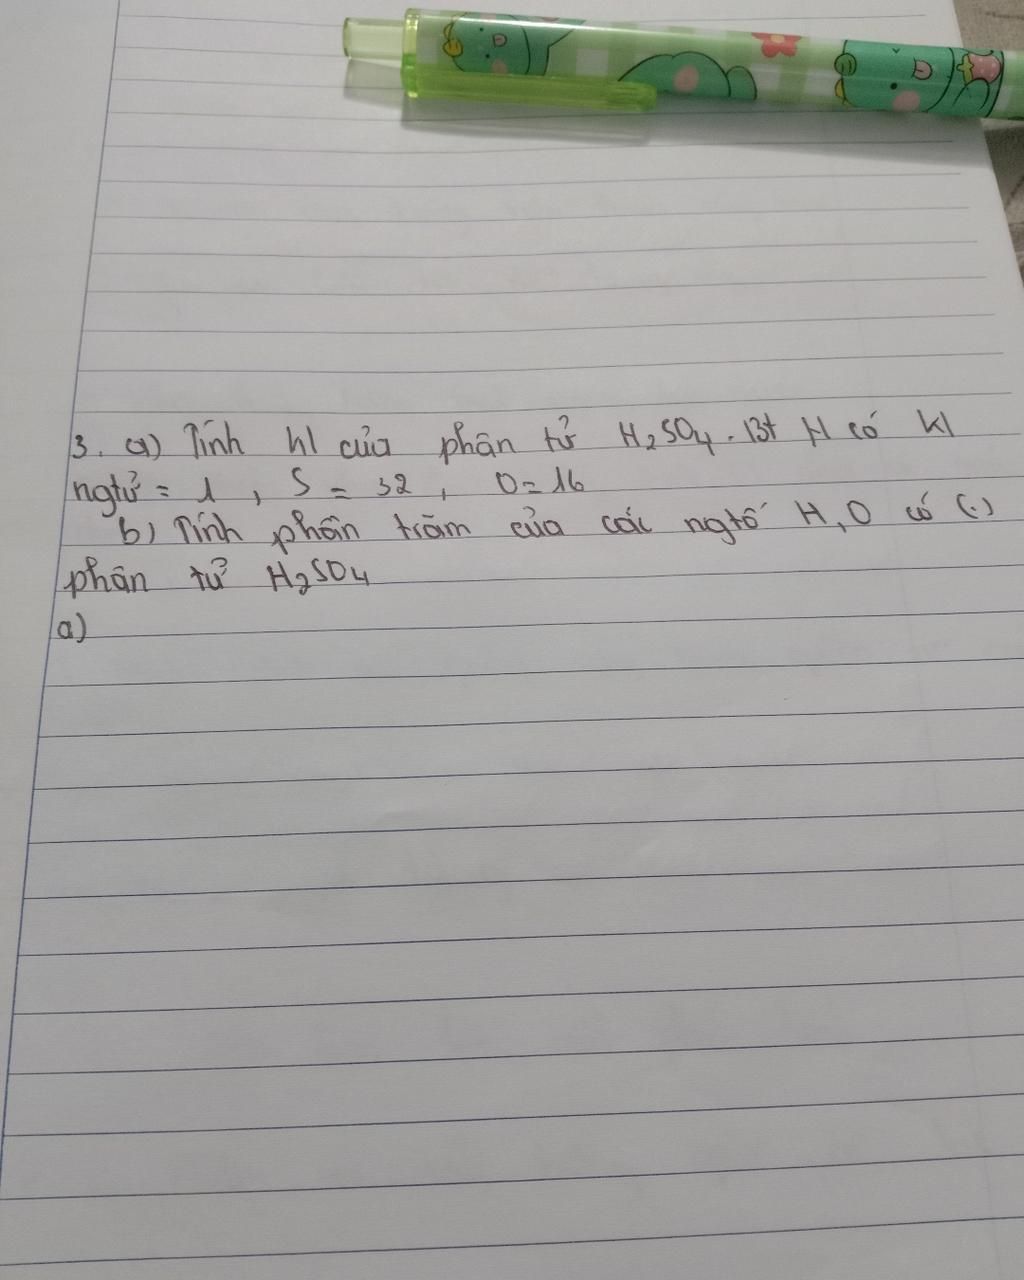 3. a) Tính kl của phân tử H₂SO₄. Bt H có kl
ngtử = 1, S = 32, O = 16
b) Tính phần trăm của các ngtố H, O có (.)
phân tử H₂SO₄
a)